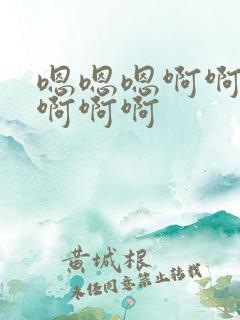 嗯嗯嗯啊啊
啊啊啊
黄城根
未经同意禁止转载